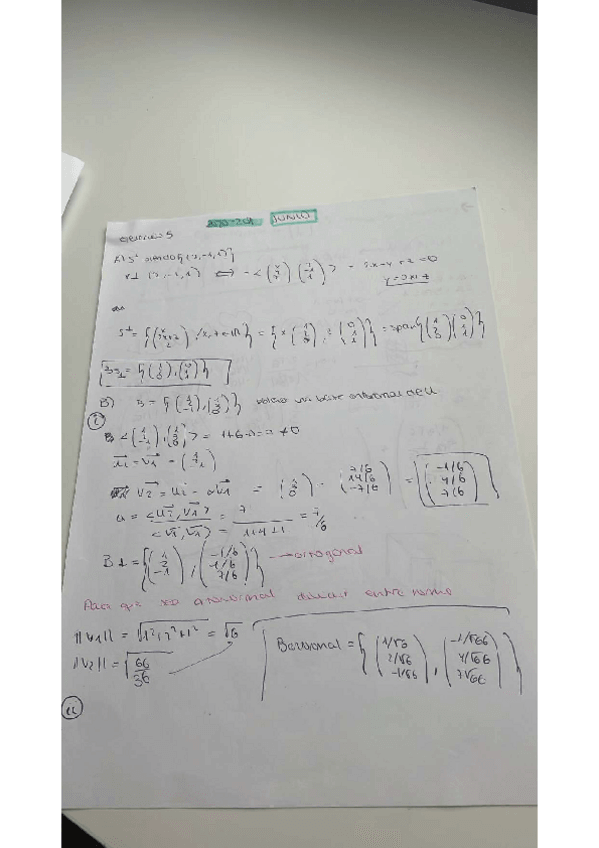 2020-2021 JUNIO
ejercicio 5
A) S⊥ siendo
<=> = 3x - y + z = 0
y = 3x + z
S⊥ = {( ) / x, z ∈ ℝ} = {x(1 3 0), z(0 1 1)} = span{(1 3 0)(0 1 1)}
B S⊥ = {(1 3 0), (0 1 1)}
B) B = {(1 2 -1), (1 3 0)} base ortonormal de U
i
<(1 2 -1), (1 3 0)> = 1+6-0 = 7 ≠ 0
u1 = v1 = (1 2 -1)
v2 = u2 - αv1 = (1 3 0) - (7/6 14/6 -7/6) = (-1/6 4/6 7/6)
α = <u2, v1> / <v1, v1> = 7 / 1+4+1 = 7/6
B⊥ = {(1 2 -1), (-1/6 4/6 7/6)} → ortogonal
Para que sea ortonormal entre norma
||v1|| = √(1²+2²+1²) = √6
||v2|| = √(66/36)
Bortonormal = {(1/√6 2/√6 -1/√6), (-1/√66 4/√66 7√66)}
ii